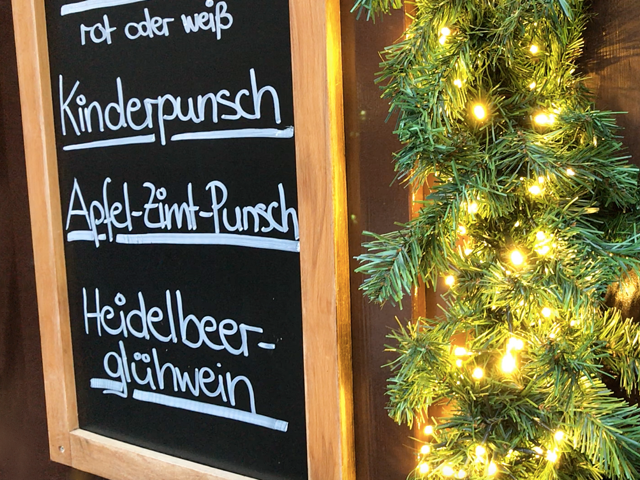 rot oder weiß
Kinderpunsch
Apfel-Zimt-Punsch
Heidelbeer-
glühwein